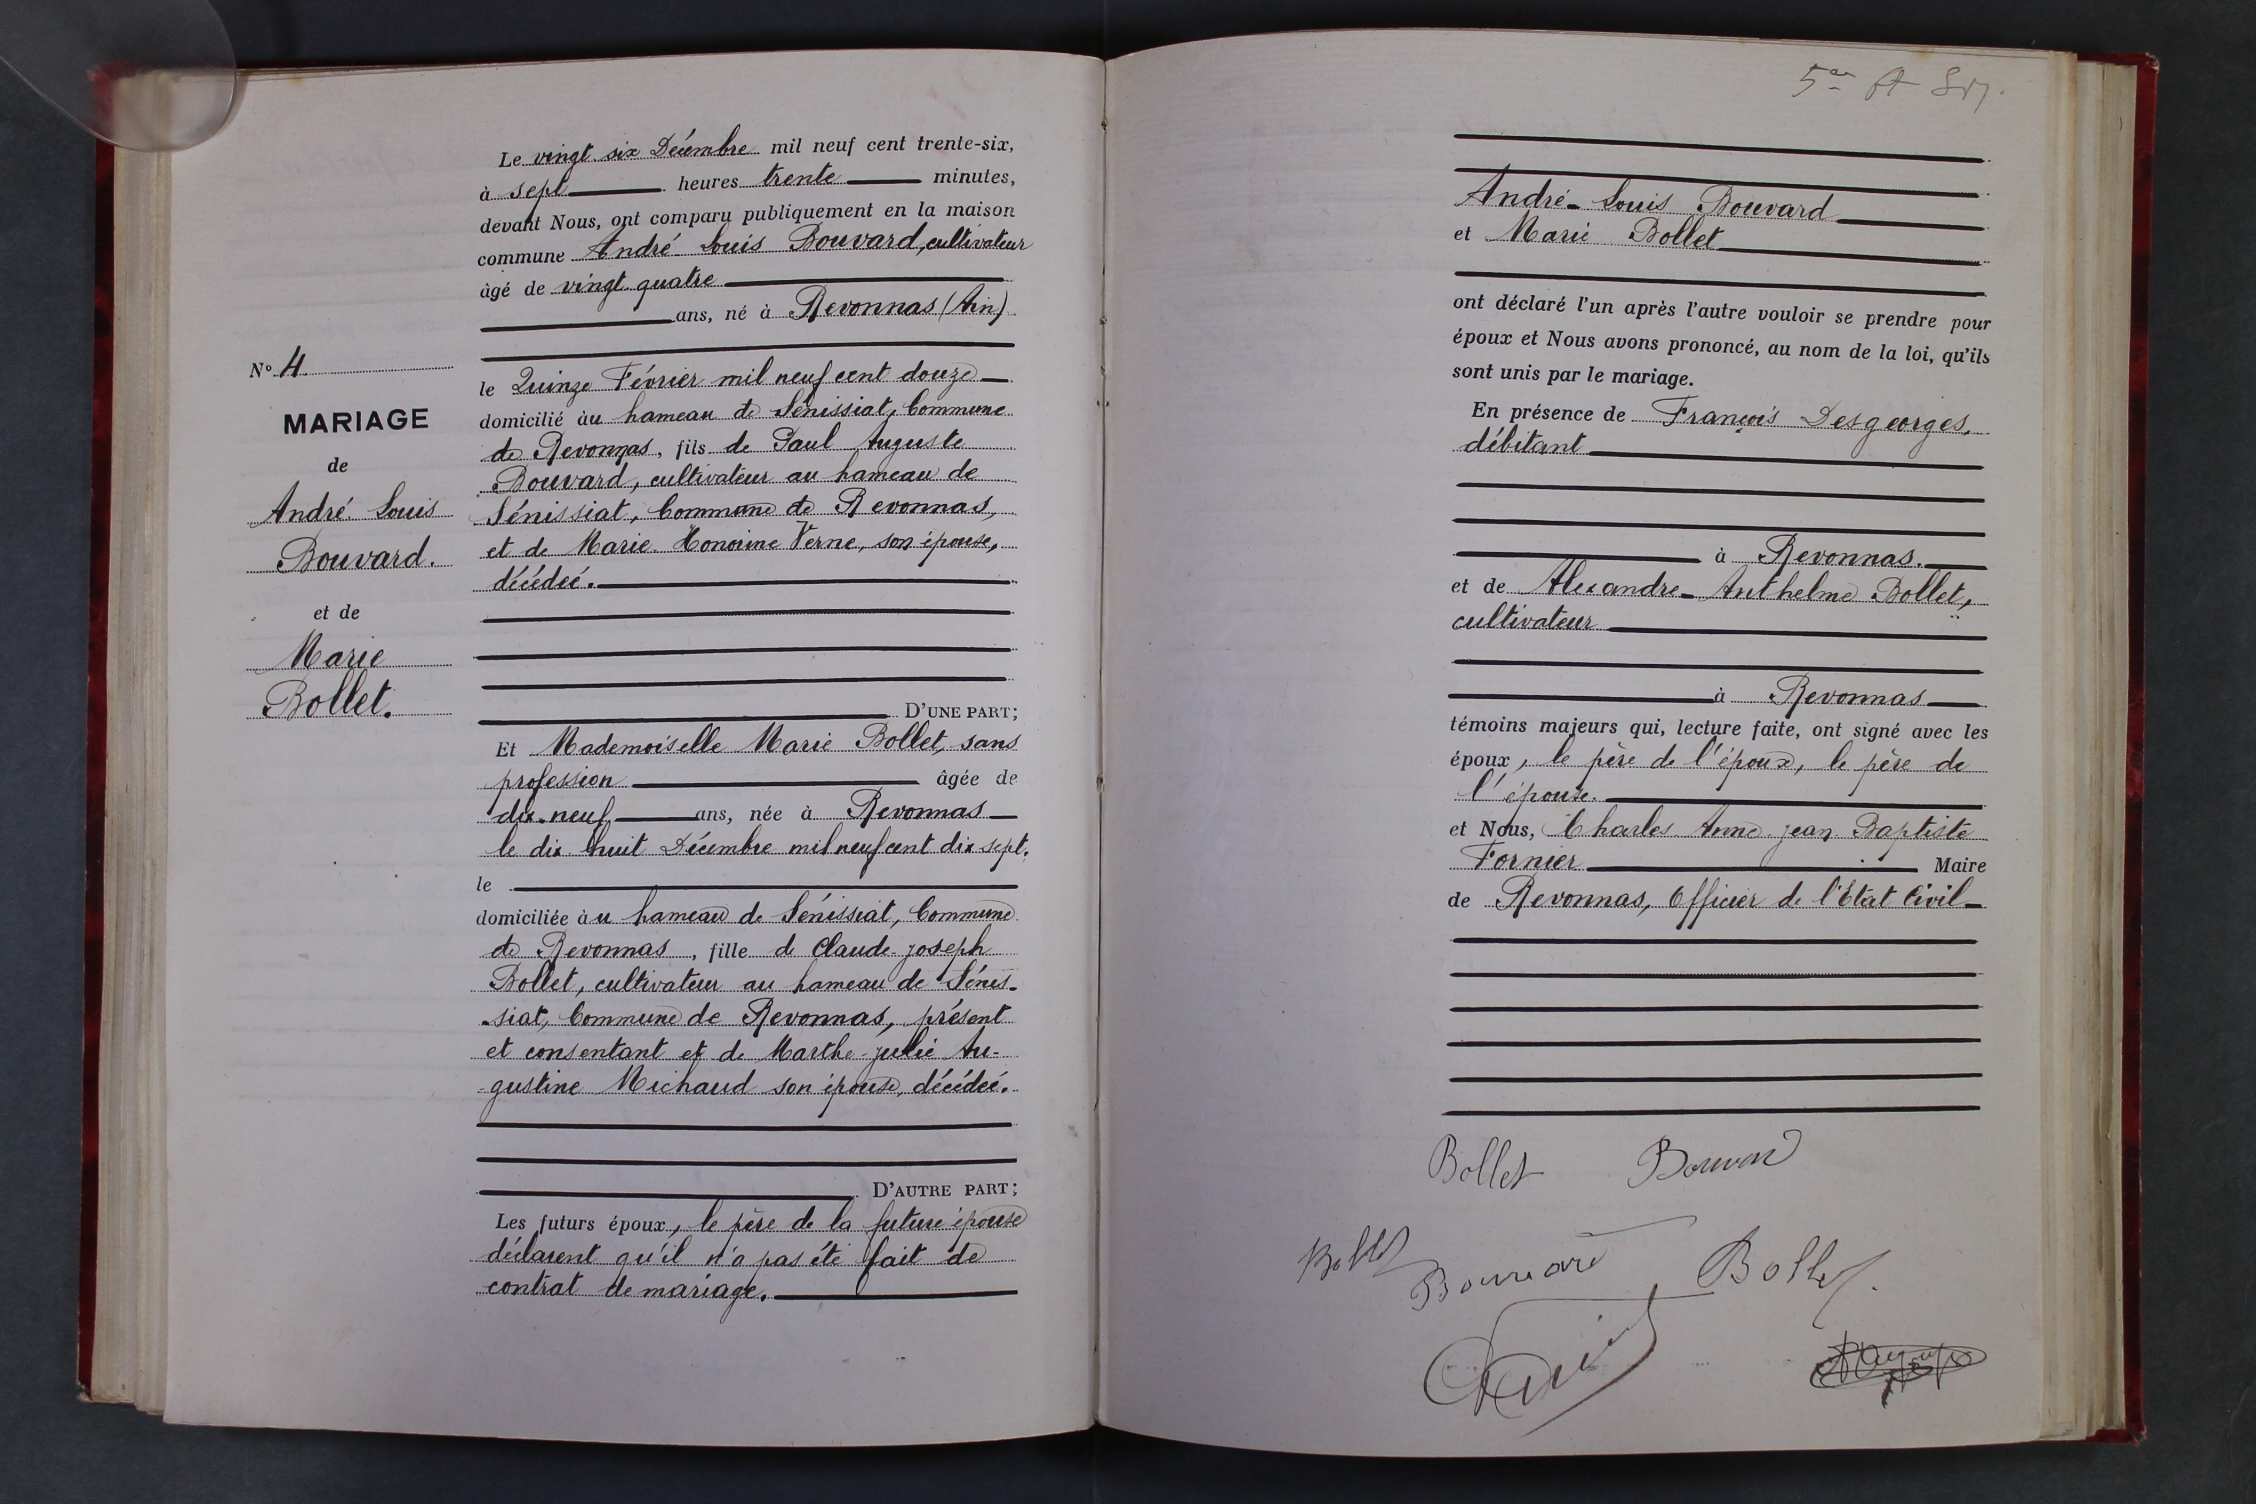 Le vingt six Décembre mil neuf cent trente-six,
à sept heures trente minutes,
devant Nous, ont comparu publiquement en la maison
commune André Louis Bouvard, cultivateur
âgé de vingt quatre
ans, né à Revonnas (Ain)
le Quinze Février mil neuf cent douze
domicilié àu hameau de Sénissiat, Commune
de Revonnas, fils de Paul Auguste
Bouvard, cultivateur au hameau de
Sénissiat, Commune de Revonnas,
et de Marie Honorine Verne, son épouse,
décédée.
D'UNE PART;
Et Mademoiselle Marie Bollet, sans
profession âgée de
dix-neuf ans, née à Revonnas
le dix huit Décembre mil neuf cent dix sept.
le
domiciliée àu hameau de Sénissiat, Commune
de Revonnas, fille de Claude Joseph
Bollet, cultivateur au hameau de Sénis-
-siat, Commune de Revonnas, présent
et consentant et de Marthe Julie Au-
-gustine Michaud son épouse, décédée.
D'AUTRE PART;
Les futurs époux, le père de la future épouse
déclarent qu'il n'a pas été fait de
contrat de mariage.
N° 4
MARIAGE
de
André Louis
Bouvard.
et de
Marie
Bollet.
André-Louis Bouvard
et Marie Bollet
ont déclaré l'un après l'autre vouloir se prendre pour
époux et Nous avons prononcé, au nom de la loi, qu'ils
sont unis par le mariage.
En présence de François Desgeorges,
débitant
à Revonnas.
et de Alexandre-Anthelme Bollet,
cultivateur
à Revonnas
témoins majeurs qui, lecture faite, ont signé avec les
époux, le père de l'époux, le père de
l'épouse.
et Nous, Charles Anne Jean Baptiste
Fornier Maire
de Revonnas, Officier de l'Etat Civil
Bollet Bouvard
Bollet Bouvard Bollet